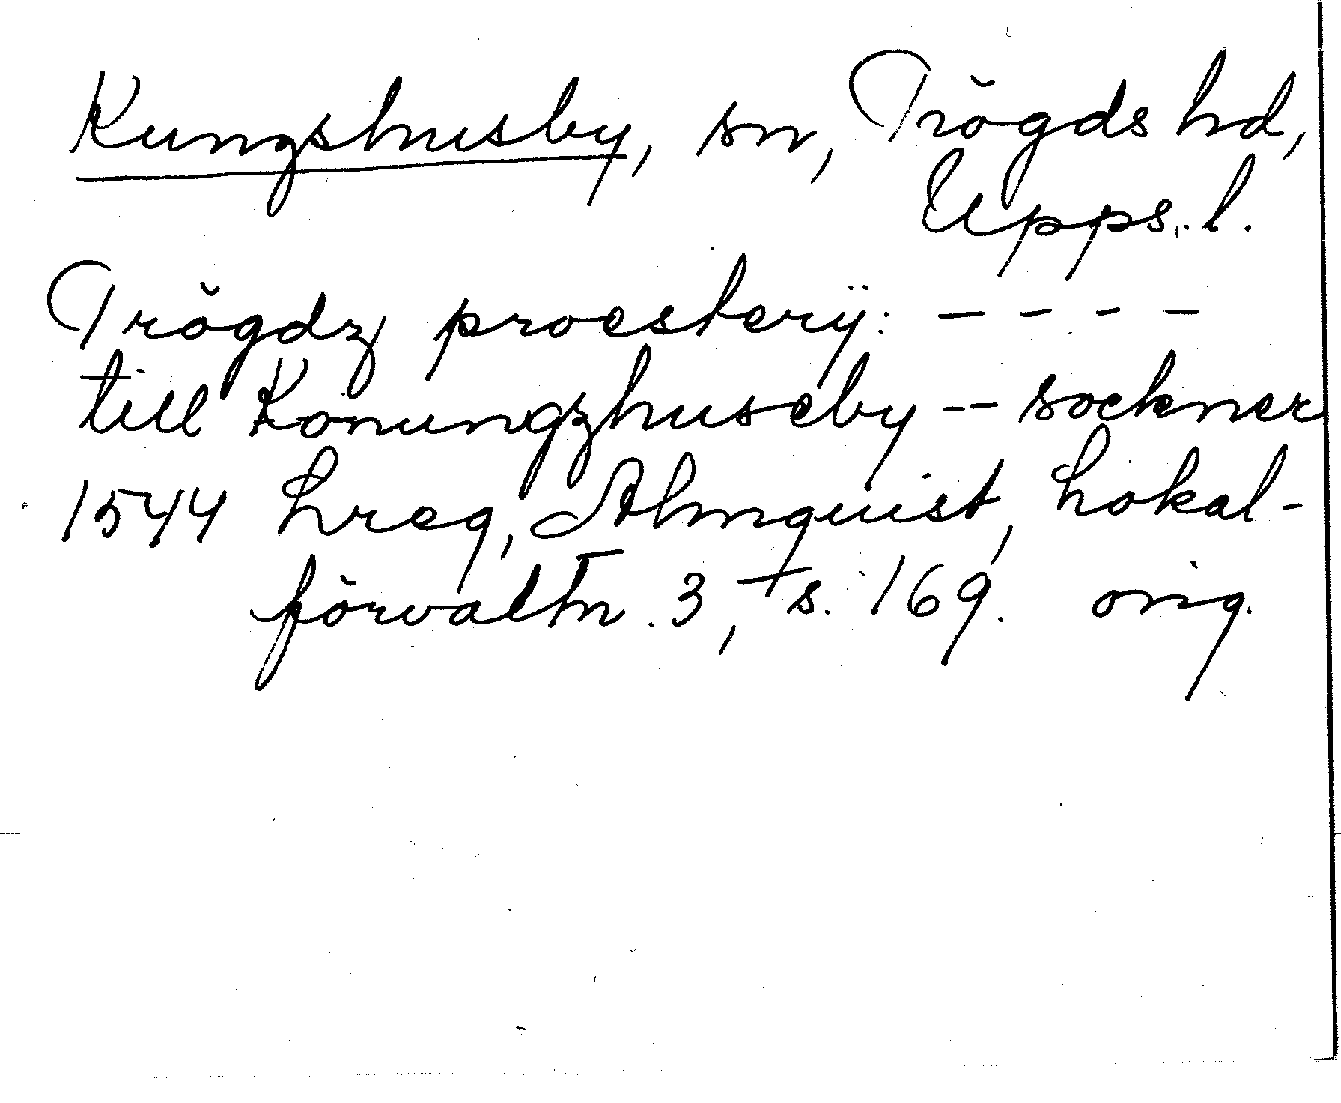 Kungshusby, sn, Trögds hd,
Upps. l.
Trögdz proesterÿ: - - - -
till Konungzhuseby -- sockner
1544 Lreg, Almquist, Lokal-
förvaltn. 3, s. 169. orig.